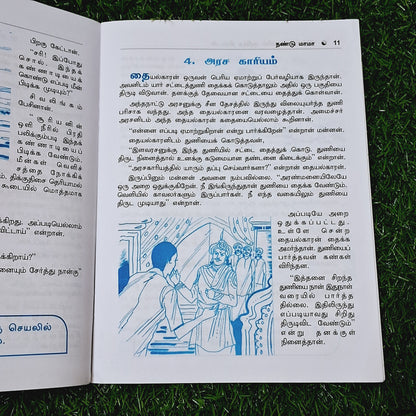 பிறகு கேட்டான்.
"சரி! இப்போது
சொல். இந்தக்
கண்ணாடியைக்
கொண்டு எப்படி மீன்
பிடிக்க முடியும்?"
சிவலிங்கம்
பேசினான்.
ஒளி நீரில் பிரதி
பலிக்கும்படி இந்தக்
கண்ணாடியைப்
பிடிக்க வேண்டும்.
மீன்கள் வெளிச்
சத்தை நோக்கி
திக்குத் தெரியாமல்
கூடையில் மொத்தமாக
கிறது. அப்படியெல்லாம்
விட்டாய்" என்றான்.
கிறாய்?"
னையும் சேர்த்து நான்கு"
செயலில்
நண்டு மாமா 11
4. அரச காரியம்
தையல்காரன் ஒருவன் பெரிய ஏமாற்றுப் பேர்வழியாக இருந்தான்.
அவனிடம் யார் சட்டைத்துணி தைக்கக் கொடுத்தாலும் அதில் ஒரு பகுதியை
திருடி விடுவான். தனக்குத் தேவையான சட்டையை தைத்துக் கொள்வான்.
அந்தநாட்டு அரசனுக்கு சீன தேசத்தில் இருந்து விலையுயர்ந்த துணி
பரிசாக வந்தது. அந்த தையல்காரனை வரவழைத்தான். அமைச்சர்
அரசனிடம் அந்த தையல்காரன் கதையையெல்லாம் கூறினான்.
"என்னை எப்படி ஏமாற்றுகிறான் என்று பார்க்கிறேன்" என்றான் மன்னன்.
தையல்காரனிடம் துணியைக் கொடுத்தவன்,
"இளவரசனுக்கு இந்த துணியில் சட்டை தைத்துக் கொடு. துணியைத்
திருட நினைத்தால் உனக்கு கடுமையான தண்டனை கிடைக்கும்" என்றான்.
"அரசகாரியத்தில் யாரும் தப்பு செய்வார்களா?" என்றான் தையல்காரன்.
இருப்பினும் மன்னன் அவனை நம்பவில்லை. "அரண்மனையிலேயே
ஒரு அறை ஒதுக்குகிறேன். நீ இங்கிருந்துதான் துணியை தைக்க வேண்டும்.
வெளியில் காவலர்களும் இருப்பார்கள். நீ எந்த வகையிலும் துணியை
திருட முடியாது" என்றான்.
அப்படியே அறை
ஒதுக்கப்பட்டது.
உள்ளே சென்ற
தையல்காரன் தைக்க
அமர்ந்தான். துணியைப்
பார்த்தவன் கண்கள்
விரிந்தன.
"இத்தனை சிறந்த
துணியை நான் இதுநாள்
வரையில் பார்த்த
தில்லை. இதிலிருந்து
எப்படியாவது சிறிது
திருடிவிட வேண்டும்"
என்று தனக்குள்
நினைத்தான்.